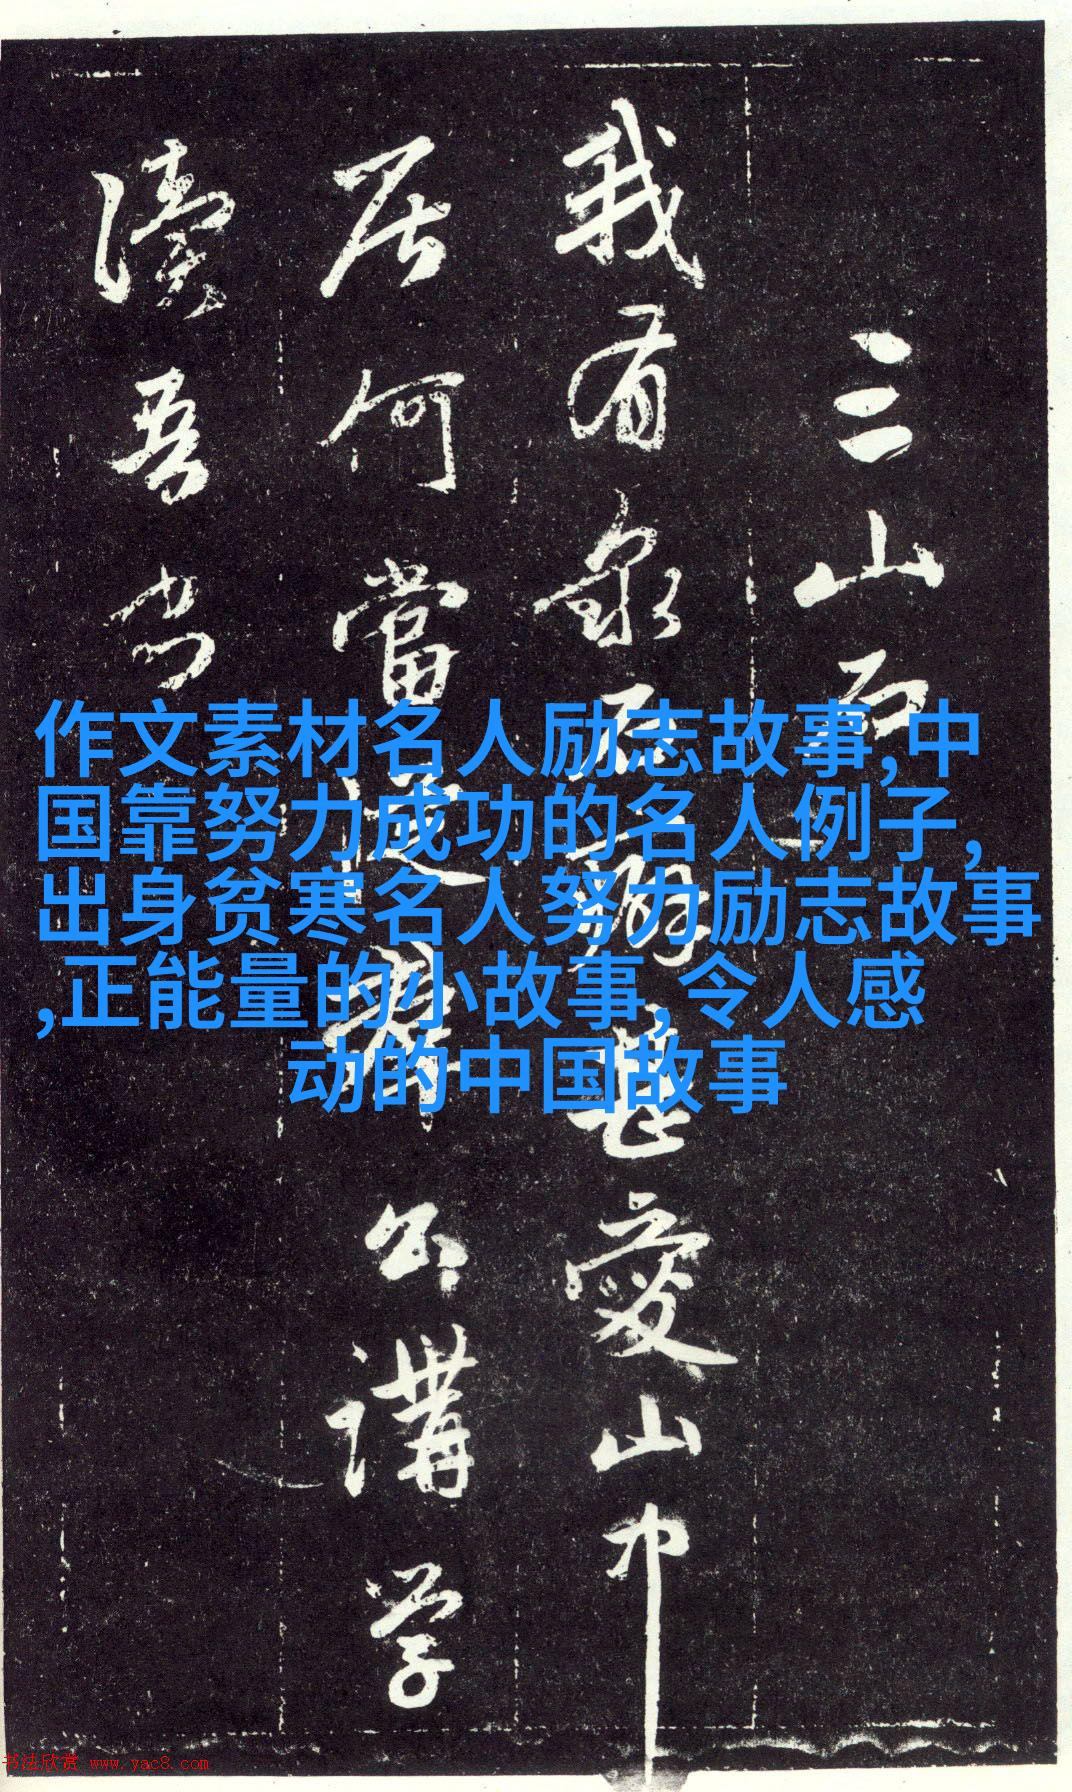 三山石
我有泉石癖甚愛山中
居何當從群公講學
讀吾書
作文素材名人励志故事,中
国靠努力成功的名人例子,
出身贫寒名人努力励志故事
,正能量的小故事,令人感
动的中国故事
书法欣赏 www.yac8.com